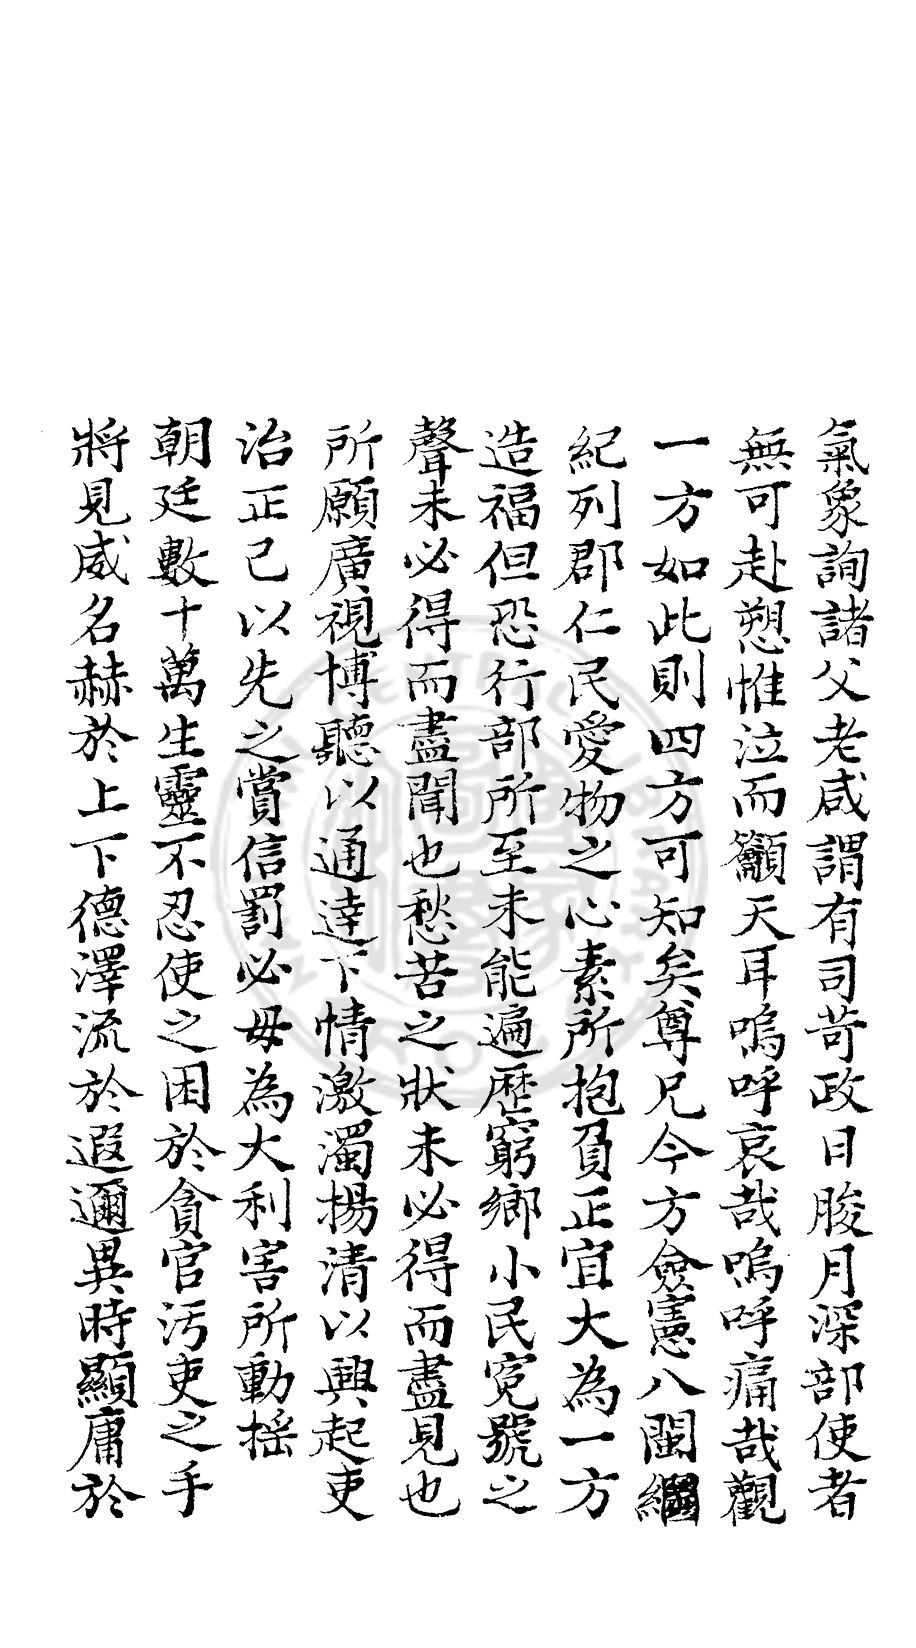 氣象詢諸父老咸謂有司苛政日朘月深部使者
無可赴愬惟泣而籲天耳嗚呼哀哉嗚呼痛哉觀
一方如此則四方可知矣尊兄今方僉憲八閩綱
紀列郡仁民愛物之心素所抱負正宜大為一方
造福但恐行部所至未能遍歷窮鄉小民寃號之
聲未必得而盡聞也愁苦之狀未必得而盡見也
所願廣視博聽以通達下情激濁揚清以興起吏
治正己以先之賞信罰必毋為大利害所動搖
朝廷數十萬生靈不忍使之困於貪官污吏之手
將見威名赫於上下德澤流於遐邇異時顯庸於